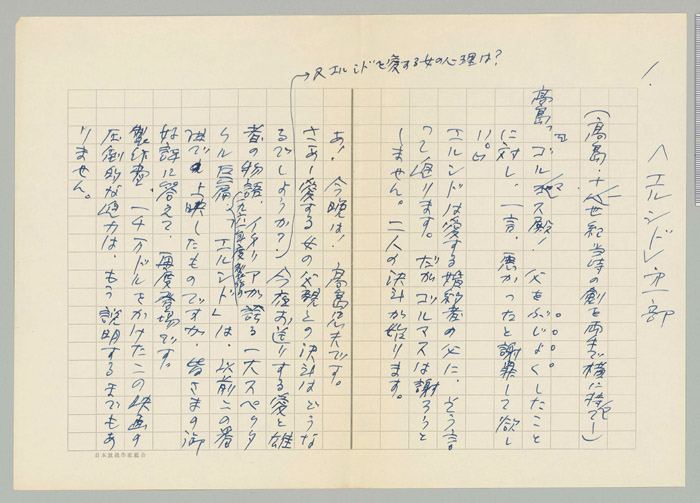 1.
〈エルシド〉第一部
(高島・十一世紀当時の剣を両手で横に持って―)
高島「ゴルマス殿! 父をぶじょくしたこと
に対し、一言、悪かったと謝罪して欲し
い。」
エルシドは愛する婚約者の父に、そう言
って迫ります。だがゴルマスは謝ろうと
しません。二人の決斗が始ります。
→又エルシドを愛する女の心理は?
あ、今晩は、高島忠夫です。
さあー愛する女の父親との決斗はどうな
るでしょうか? 今夜お送りする愛と雄
者の物語、イタリアが誇る一大スペクタ
クル反響、「エルシド」は、以前この番
(一九六一年度製作の)
組で上映したものですが、皆さまの御
好評に答えて、再度登場です。
製作費、一千四万ドルをかけたこの映画の
圧倒的な迫力は、もう説明するまでもあ
りません。
日本放送作家組合